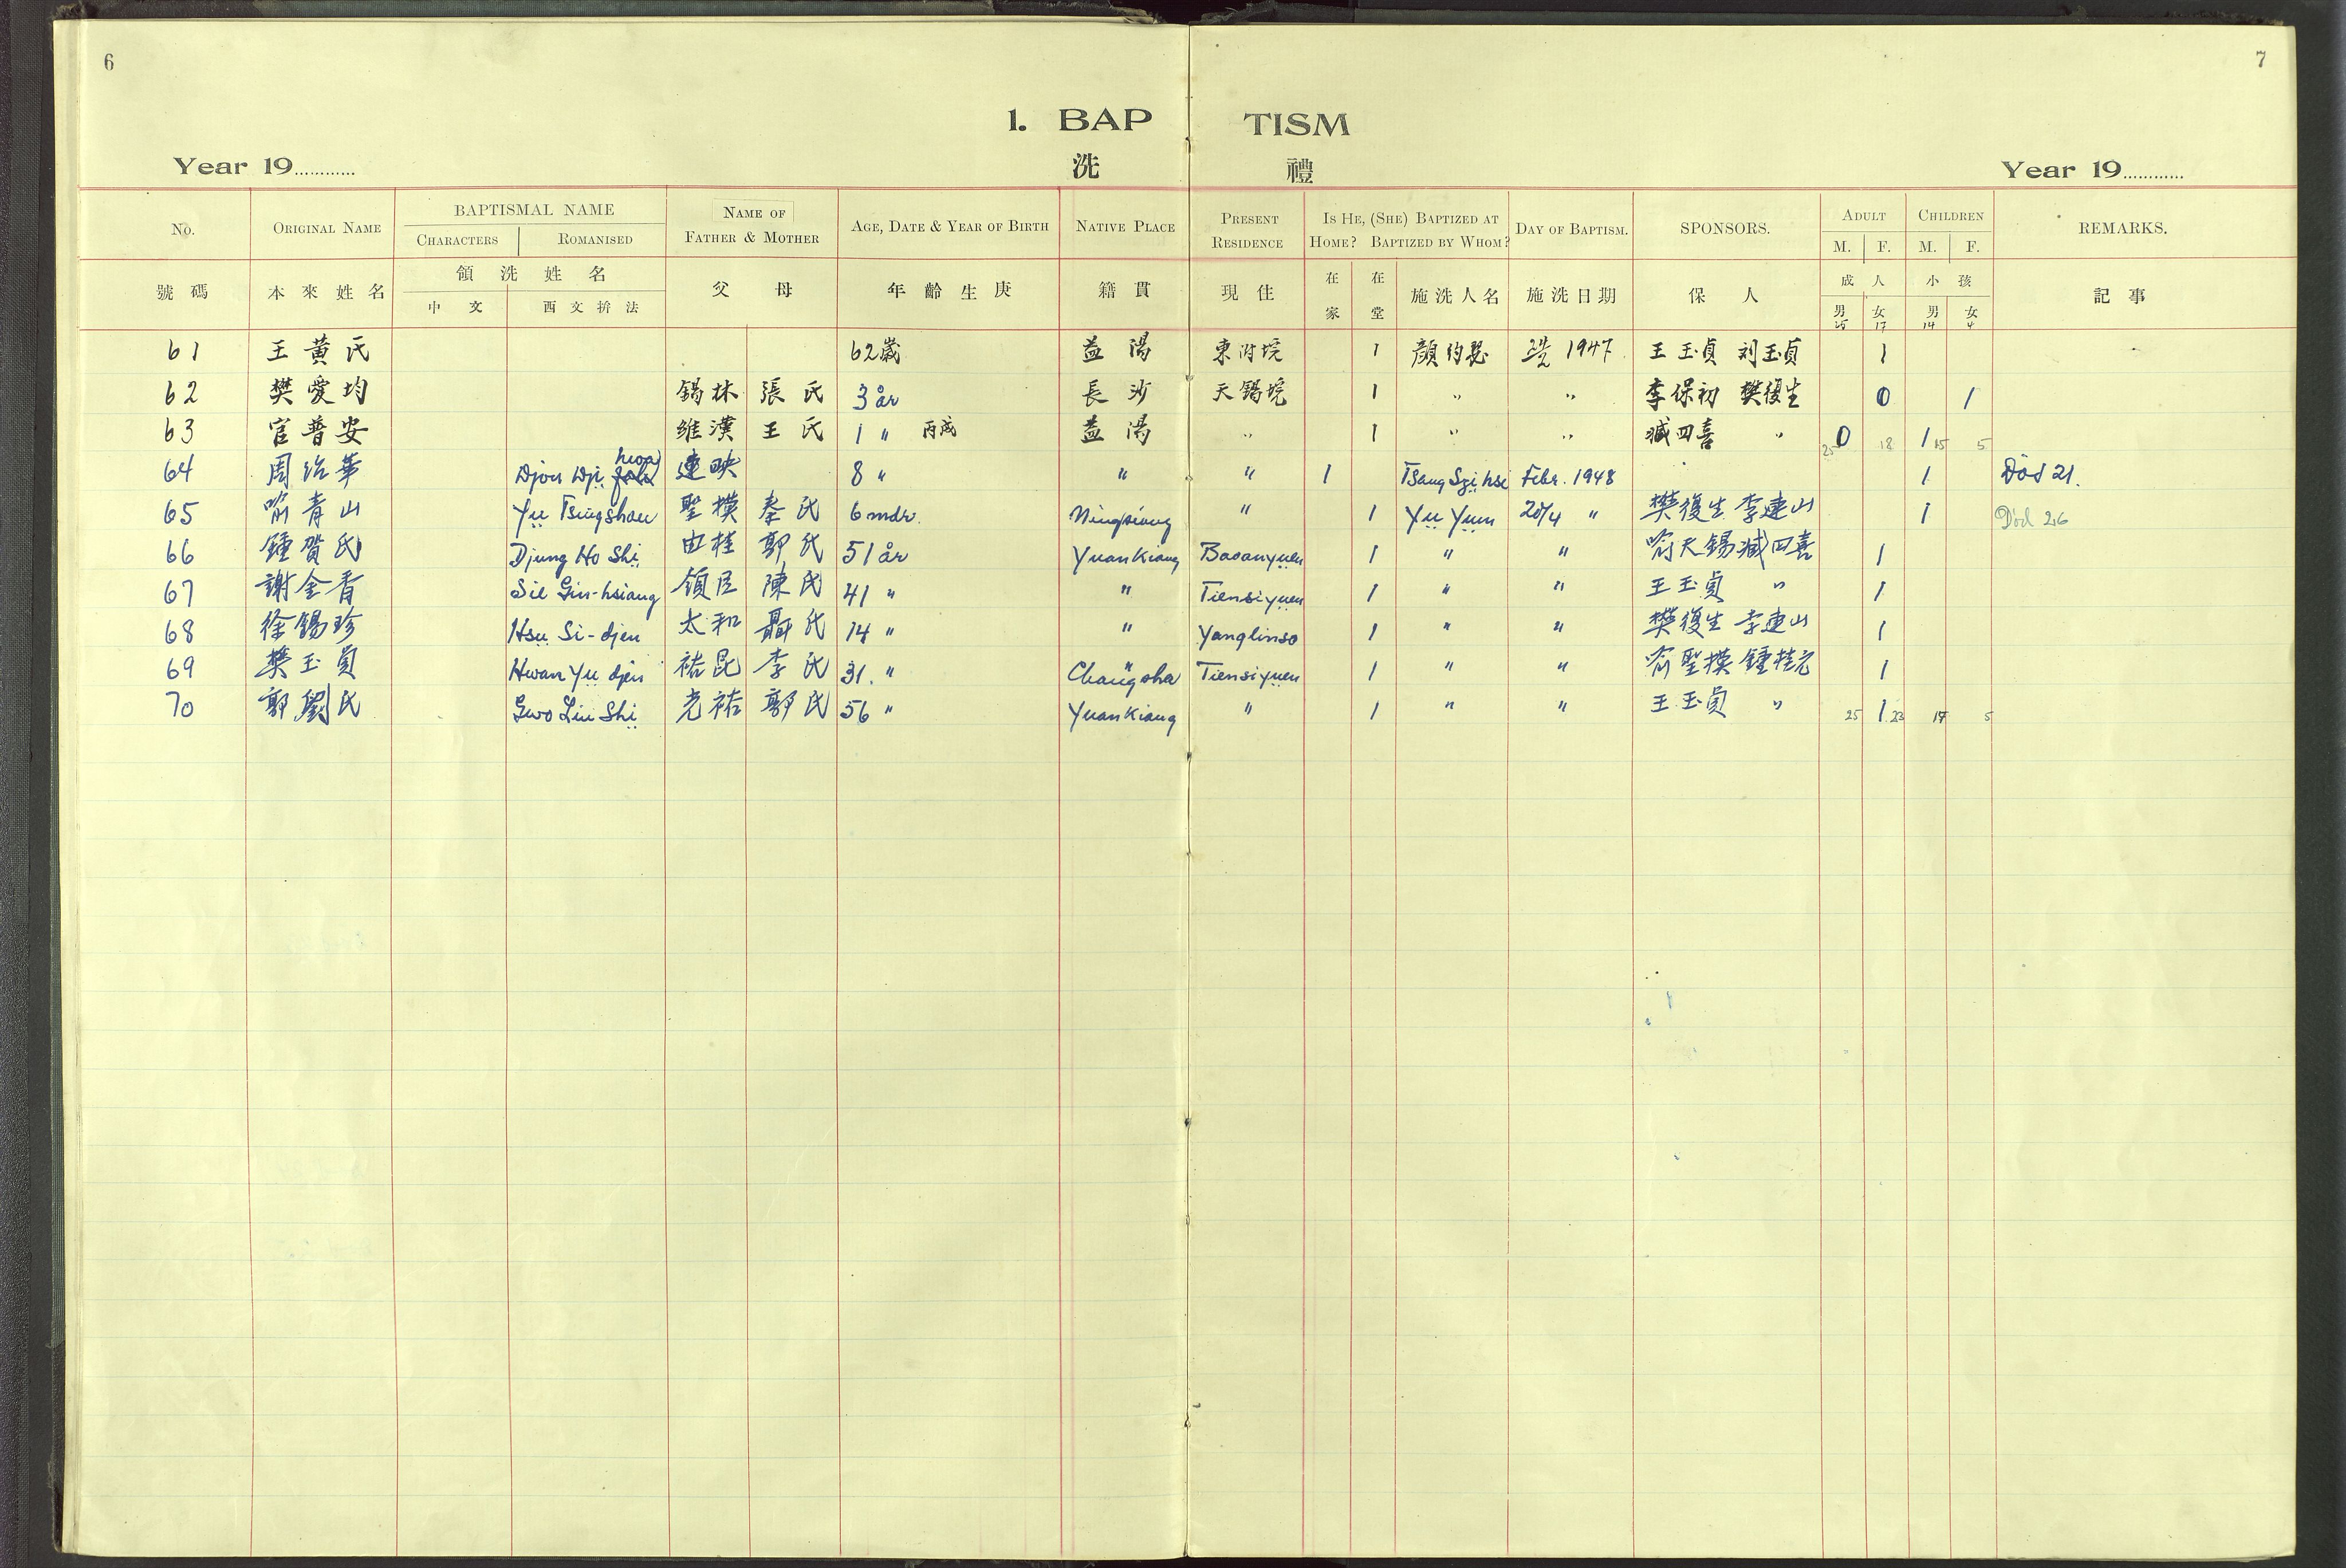 6
7
1. BAP TISM
洗 禮
Year 19............ Year 19............
No. ORIGINAL NAME BAPTISMAL NAME CHARACTERS ROMANISED NAME OF FATHER & MOTHER AGE, DATE & YEAR OF BIRTH NATIVE PLACE PRESENT RESIDENCE IS HE, (SHE) BAPTIZED AT HOME? BAPTIZED BY WHOM? DAY OF BAPTISM. SPONSORS. ADULT M. F. CHILDREN M. F. REMARKS.
號碼 本來姓名 領洗姓名 中文 西文拚法 父母 年齡生庚 籍貫 現住 在家 在堂 施洗人名 施洗日期 保人 成人 男 女 小孩 男 女 記事
25 17 14 4
61 王黃氏 62歲 益陽 東附垸 1 顏約瑟 1947 王玉貞 刘玉貞 1
62 樊愛均 錫林 張氏 3 år 長沙 天錫垸 1 " " 李保初 樊復生 0 1
63 官普安 維漢 王氏 1 " 丙戌 益陽 " 1 " " 臧四喜 " 0 1 25 18 15 5
64 周治華 Djou Dji hwa 連映 8 " " " 1 Tsang Szi hsi Febr. 1948 1 Död 21.
65 喻青山 Yu Tsingshan 聖模 秦氏 6 mdr. Ningsiang " 1 Yu Yuin 20/4 " 樊復生 李連山 1 Död 26
66 鍾賀氏 Djung Ho Shi 郭氏 51 år Yuankiang Baoanyuen 1 " " 喻天錫 臧四喜 1
67 謝金香 Sie Gin-hsiang 領臣 陳氏 41 " " Tiensiyuen 1 " " 王玉貞 " 1
68 徐錫珍 Hsu Si-djen 太和 聶氏 14 " " Yanglinso 1 " " 樊復生 李連山 1
69 樊玉貞 Hwan Yu djen 祐昆 李氏 31. " Changsha Tiensiyuen 1 " " 喻聖模 鍾桂元 1
70 郭劉氏 Gwo Liu Shi 光祐 郭氏 56 " Yuankiang " 1 " " 王玉貞 " 25 1 23 17 5